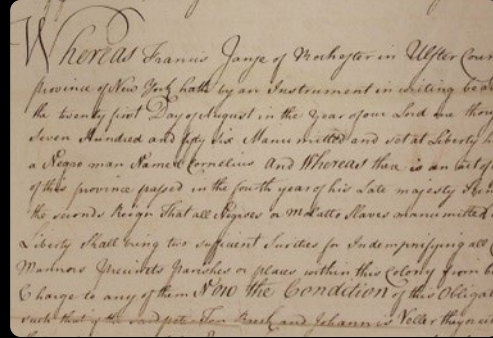 Whereas Francis Jange of Rochester in Ulster Coun
province of New York hath by an Instrument in writing bear
the twenty first Day of August in the year of our Lord one thou
Seven Hundred and fifty Six Manumitted and set at Liberty h
a Negro man Named Cornelius And Whereas thare is an act of
of this province passed in the fourth year of his Late majesty
the seconds Reign That all Negroes or molatto Slaves manumitted
Liberty Shall bring two sufficient Surities for Indempnifying all
Mannors Precincts Parishes or places within this Colony from
Charge to any of them Now the Condition of this Obligat
such that if the said and Johannis